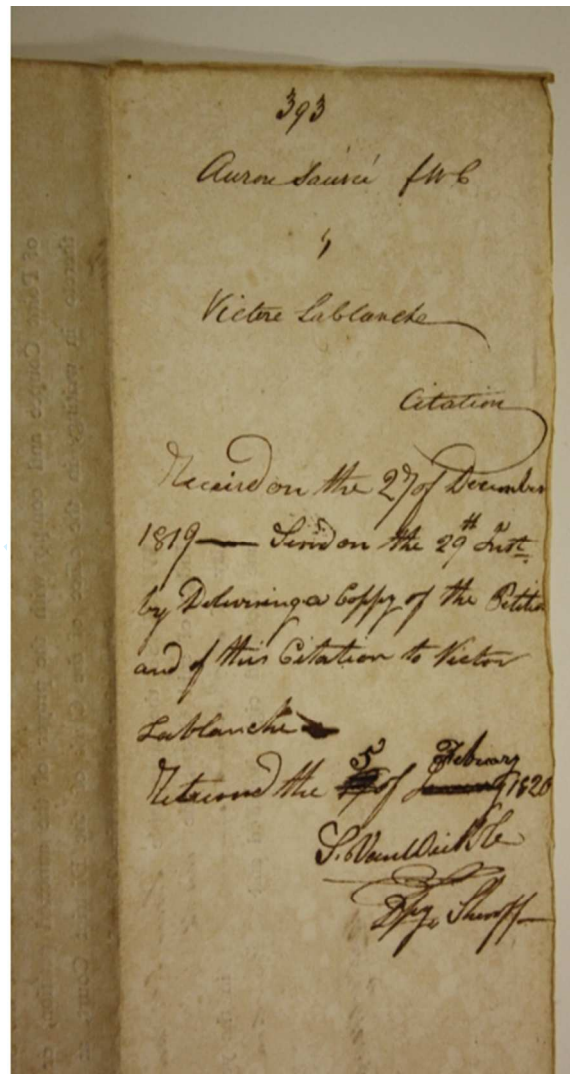 393
Aurore Saurié fWC
Victore Lablanche
Citation
Receivd on the 27 of December
1819 — Servd on the 29th Inst.
by Delivering a Coppy of the Petitio
and of this Citation to Victor
Lablanche
5 February
Returned the of 1820
S. VanWickle
Dpy. Sheriff